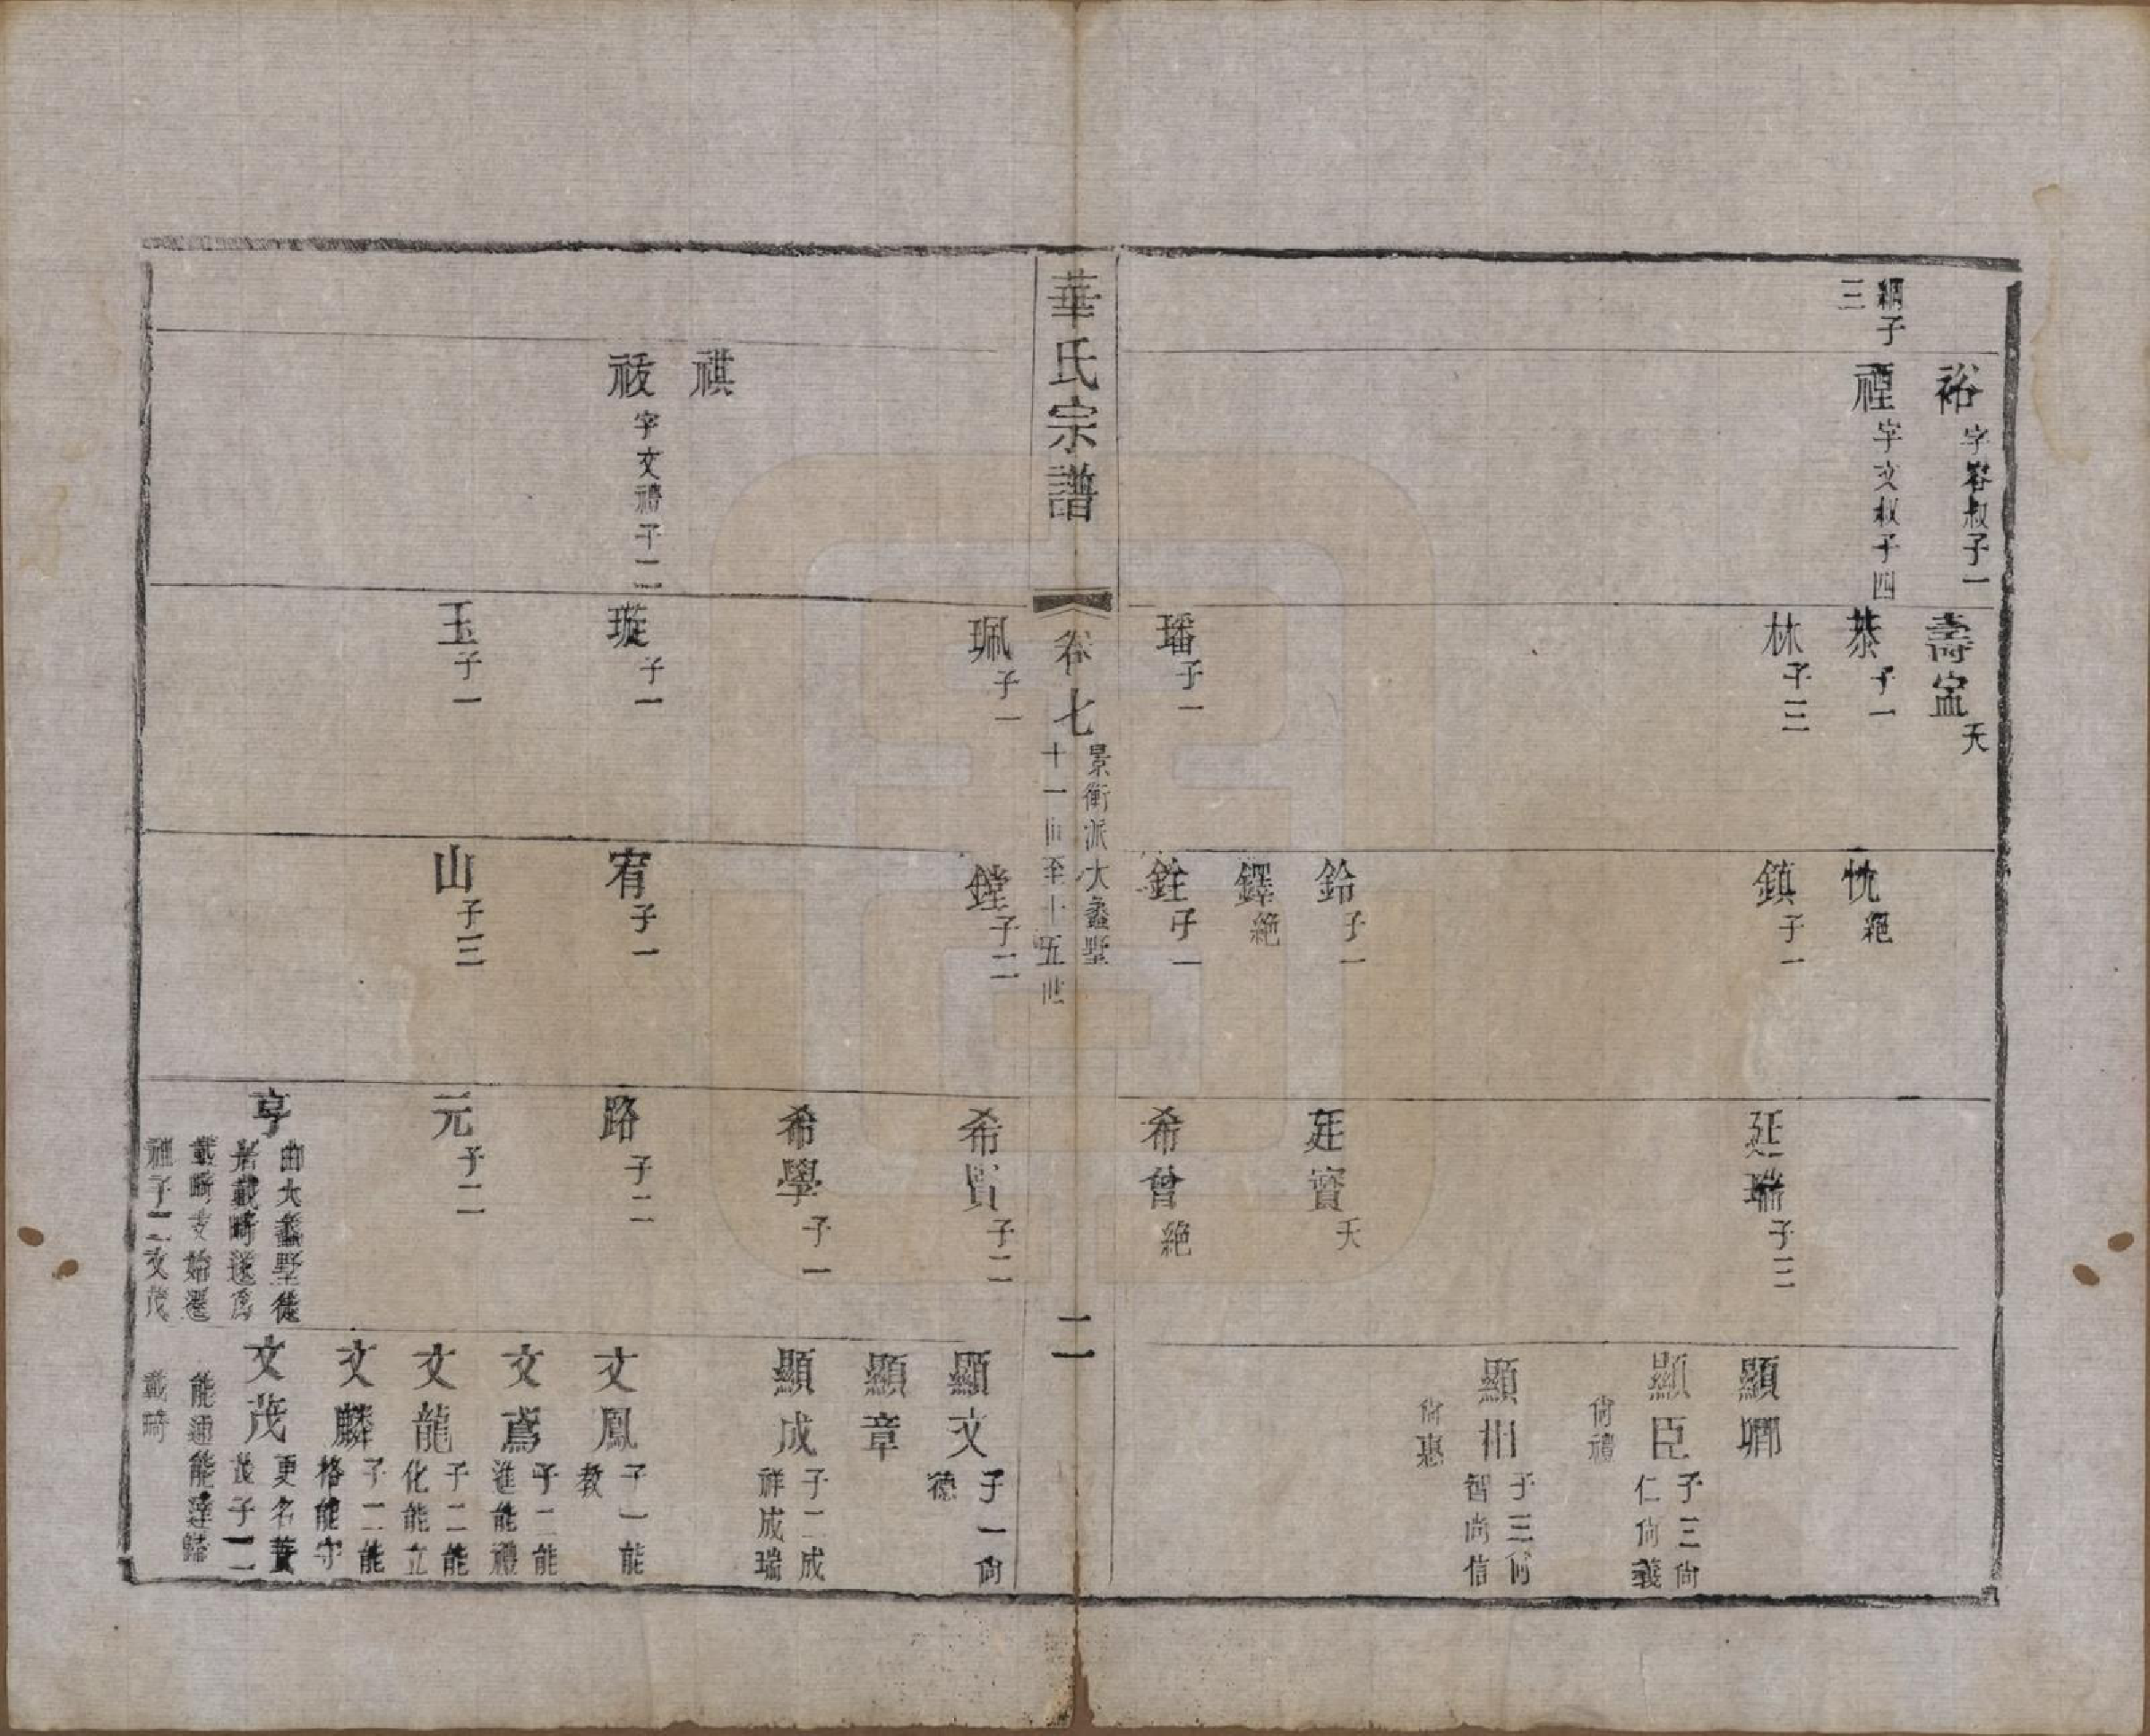 絅子三
裕 字容叔子一
禋 字文叔子四
壽㝉 夭
恭 子一
林 子三
璠 子一
忱 絕
鎮 子一
鈴 子一
鐸 絕
銓 子一
延瑞 子三
廷寶 夭
希曾 絕
顯卿
顯臣 子三尙仁尙義
尙禮
顯相 子三尙智尙信
尙惠
華氏宗譜
卷七
景衡派大蠡墅
十一世至十五世
二
祺
祓 字文禮子二
珮 子一
璇 子一
玉 子一
鏜 子二
宥 子一
山 子三
希賢 子二
希學 子一
路 子二
元 子二
亨 由大蠡墅徙居戴畸遂爲戴畸支始遷祖子二文茂
顯文 子一尙德
顯章
顯成 子二成祥成瑞
文鳳 子一能教
文鳶 子二能進能禮
文龍 子二能化能立
文麟 子二能格能守
文茂 更名蕡茂子二
能通能達歸
戴畸